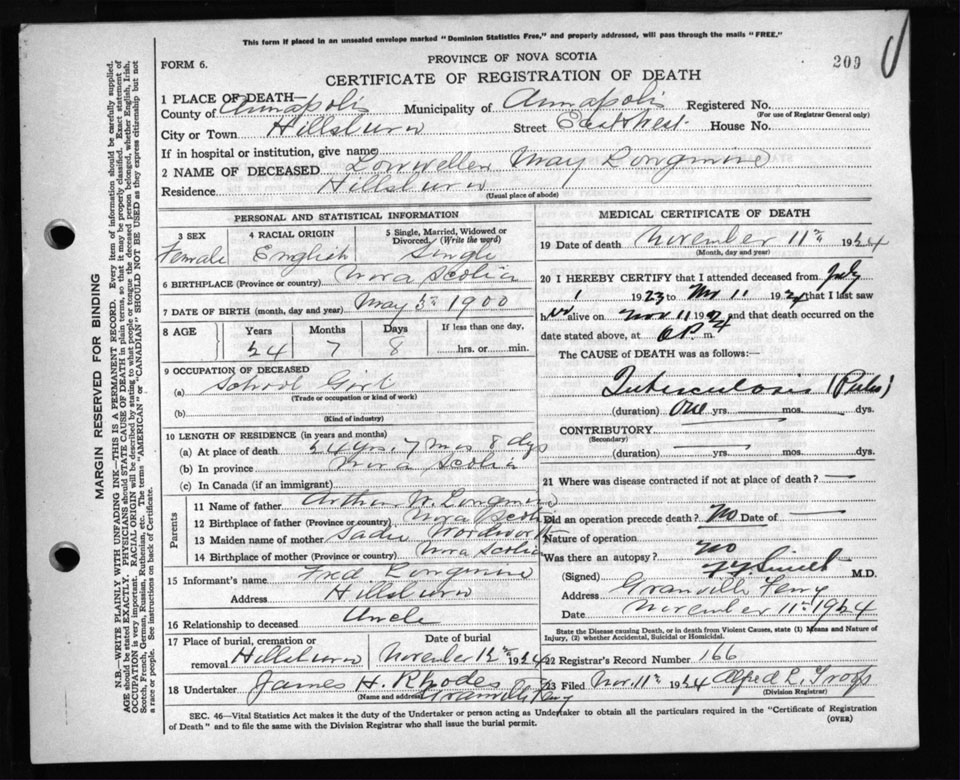 This form if placed in an unsealed envelope marked "Dominion Statistics Free," and properly addressed, will pass through the mails "FREE."
FORM 6.
PROVINCE OF NOVA SCOTIA
209
CERTIFICATE OF REGISTRATION OF DEATH
1 PLACE OF DEATH—
County of Annapolis Municipality of Annapolis Registered No.
(For use of Registrar General only)
City or Town Hillsburn Street East West House No.
If in hospital or institution, give name
2 NAME OF DECEASED May Longmire
Residence Hillsburn
(Usual place of abode)
PERSONAL AND STATISTICAL INFORMATION
3 SEX 4 RACIAL ORIGIN 5 Single, Married, Widowed or Divorced. (Write the word)
Female English Single
6 BIRTHPLACE (Province or country) Nova Scotia
7 DATE OF BIRTH (month, day and year) May 3 1900
8 AGE Years Months Days If less than one day,
24 7 8 hrs. or min.
9 OCCUPATION OF DECEASED
(a) School Girl
(Trade or occupation or kind of work)
(b)
(Kind of industry)
10 LENGTH OF RESIDENCE (in years and months)
(a) At place of death 24 yrs. 7 mos 8 dys
(b) In province Nova Scotia
(c) In Canada (if an immigrant)
Parents
11 Name of father Arthur W. Longmire
12 Birthplace of father (Province or country) Nova Scotia
13 Maiden name of mother Sadie
14 Birthplace of mother (Province or country) Nova Scotia
15 Informant's name Fred Longmire
Address Hillsburn
16 Relationship to deceased Uncle
17 Place of burial, cremation or removal Hillsburn
Date of burial November 12th 1924
18 Undertaker James H. Rhodes
(Name and address) Granville Ferry
MEDICAL CERTIFICATE OF DEATH
19 Date of death November 11th 1924
(Month, day and year)
20 I HEREBY CERTIFY that I attended deceased from July
1 1923 to Nov 11 1924 that I last saw
her alive on Nov 11 192 and that death occurred on
date stated above, at P. m.
The CAUSE of DEATH was as follows:
Tuberculosis
(duration) one yrs. mos. dys.
CONTRIBUTORY
(Secondary)
(duration) yrs. mos. dys.
21 Where was disease contracted if not at place of death?
Did an operation precede death? No Date of
Nature of operation
Was there an autopsy? no
(Signed) M.D.
Address Granville Ferry
Date November 11th 1924
State the Disease causing Death, or in death from Violent Causes, state (1) Means and Nature of Injury, (2) whether Accidental, Suicidal or Homicidal.
22 Registrar's Record Number 166
23 Filed Nov. 11th 1924 Alfred L.
(Division Registrar)
SEC. 46—Vital Statistics Act makes it the duty of the Undertaker or person acting as Undertaker to obtain all the particulars required in the "Certificate of Registration
of Death" and to file the same with the Division Registrar who shall issue the burial permit.
(OVER)
MARGIN RESERVED FOR BINDING
N.B.—WRITE PLAINLY WITH UNFADING INK—THIS IS A PERMANENT RECORD. Every item of information should be carefully supplied.
AGE should be stated EXACTLY. PHYSICIANS should STATE CAUSE OF DEATH in plain terms, so that it may be properly classified. Exact statement of
OCCUPATION is very important. RACIAL ORIGIN will be described by stating to what people or tongue the deceased person belonged, whether English, Irish,
Scotch, French, German, Russian, Ruthenian, etc. The terms "AMERICAN" or "CANADIAN" SHOULD NOT BE USED as they express citizenship but not
a race or people. See instructions on back of Certificate.